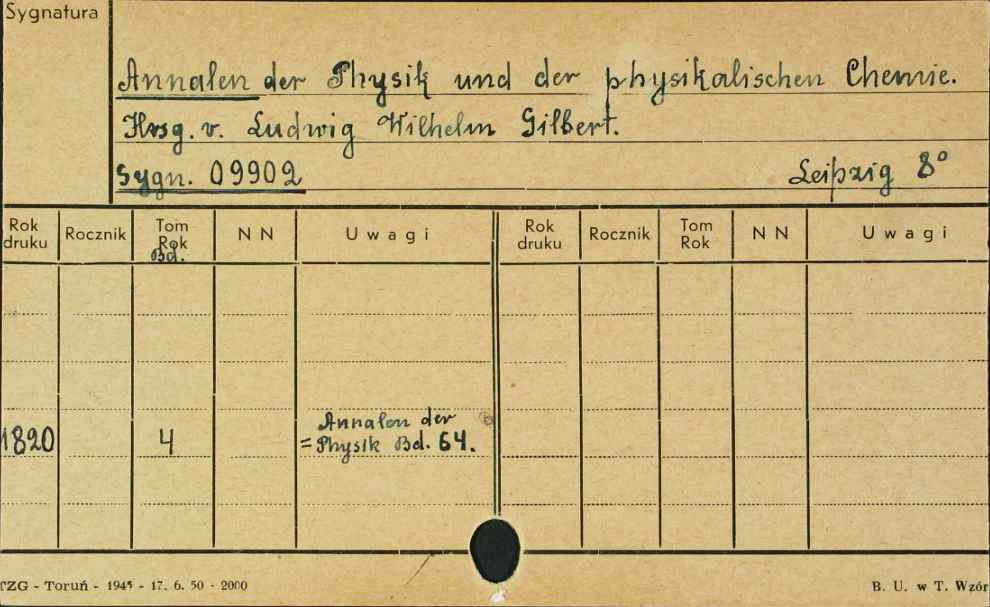 Sygnatura
Annalen der Physik und der physikalischen Chemie.
Hrsg. v. Ludwig Wilhelm Gilbert.
Sygn. 09902 Leipzig 8°
Rok druku Rocznik Tom Rok Bd. N N Uwagi Rok druku Rocznik Tom Rok N N Uwagi
1820 4 Annalen der
= Physik Bd. 64.
TZG - Toruń - 1945 - 17. 6. 50 - 2000 B. U. w T. Wzór